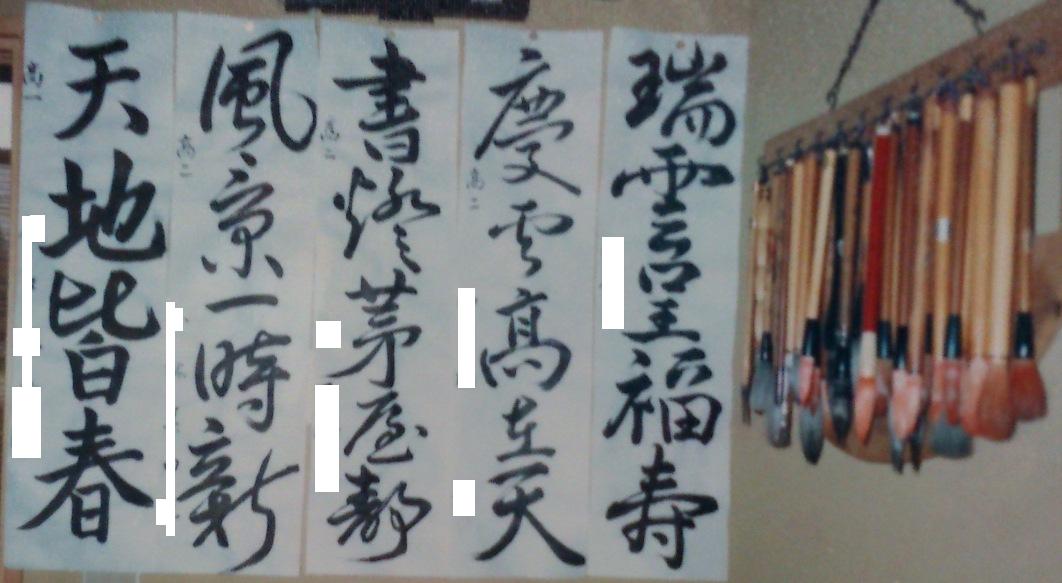 瑞雲呈福寿
慶雲高在天
高二
書燈茅屋静
高二
風景一時新
高二
天地皆春
高一